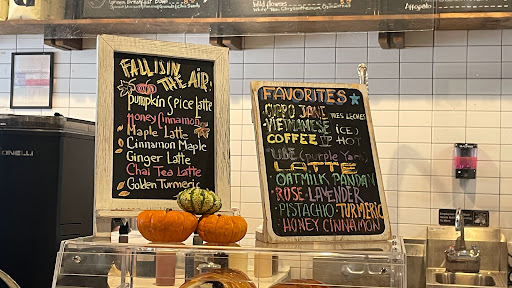 Green Breakfast Bowl
Wild flowers
Affogato
FALL IS IN
THE AIR!
Pumpkin Spice Latte
Honey Cinnamon
Maple Latte
Cinnamon Maple
Ginger Latte
Chai Tea Latte
Golden Turmeric
FAVORITES
TRES LECHES
VIETNAMESE ICE)
COFFEE HOT
UBE (Purple Yam)
LATTE
OATMILK PANDAN
ROSE·LAVENDER
·PISTACHIO·TURMERIC
HONEY CINNAMON